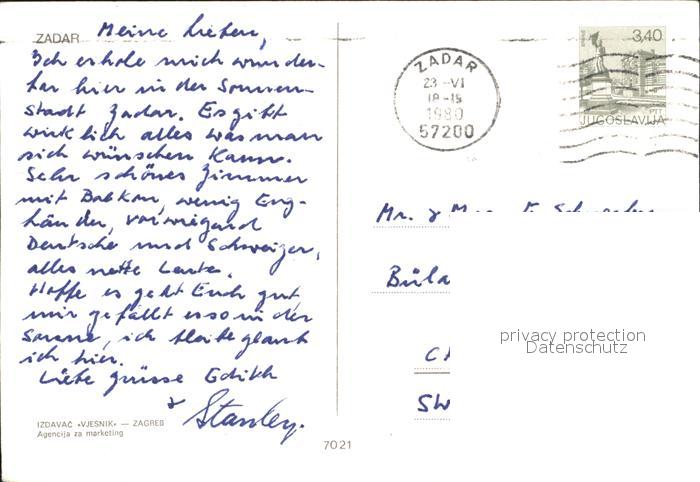 ZADAR
Meine Lieben,
Ich erhole mich wunder-
bar hier in der Sonnen-
stadt Zadar. Es gibt
wirklich alles was man
sich wünschen kann.
Sehr schönes Zimmer
mit Balkon, wenig Eng-
länder, vorwiegend
Deutsche und Schweizer,
alles nette Leute.
Hoffe es geht Euch gut,
mir gefällt es so in der
Sonne, ich bleibe glaub
ich hier.
Liebe grüsse Edith
& Stanley.
IZDAVAČ «VJESNIK» — ZAGREB
Agencija za marketing
7021
ZADAR
23 -VI
18-19
1980
57200
3,40
PTT
JUGOSLAVIJA
Mr. &
Büla
CH
SW
privacy protection
Datenschutz